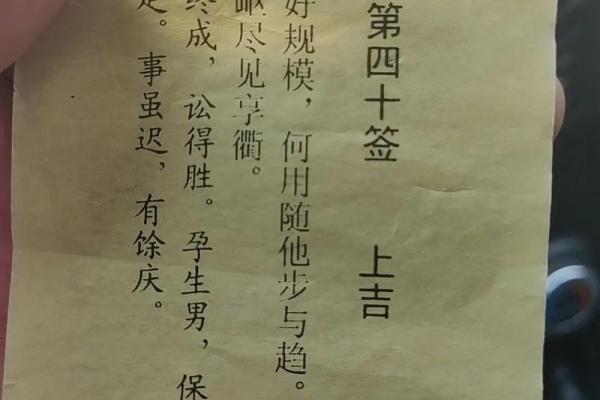 第四十签 上吉
好规模，何用随他步与趋。
岖尽见享衢。
终成，讼得胜。孕生男，保
。事虽迟，有馀庆。